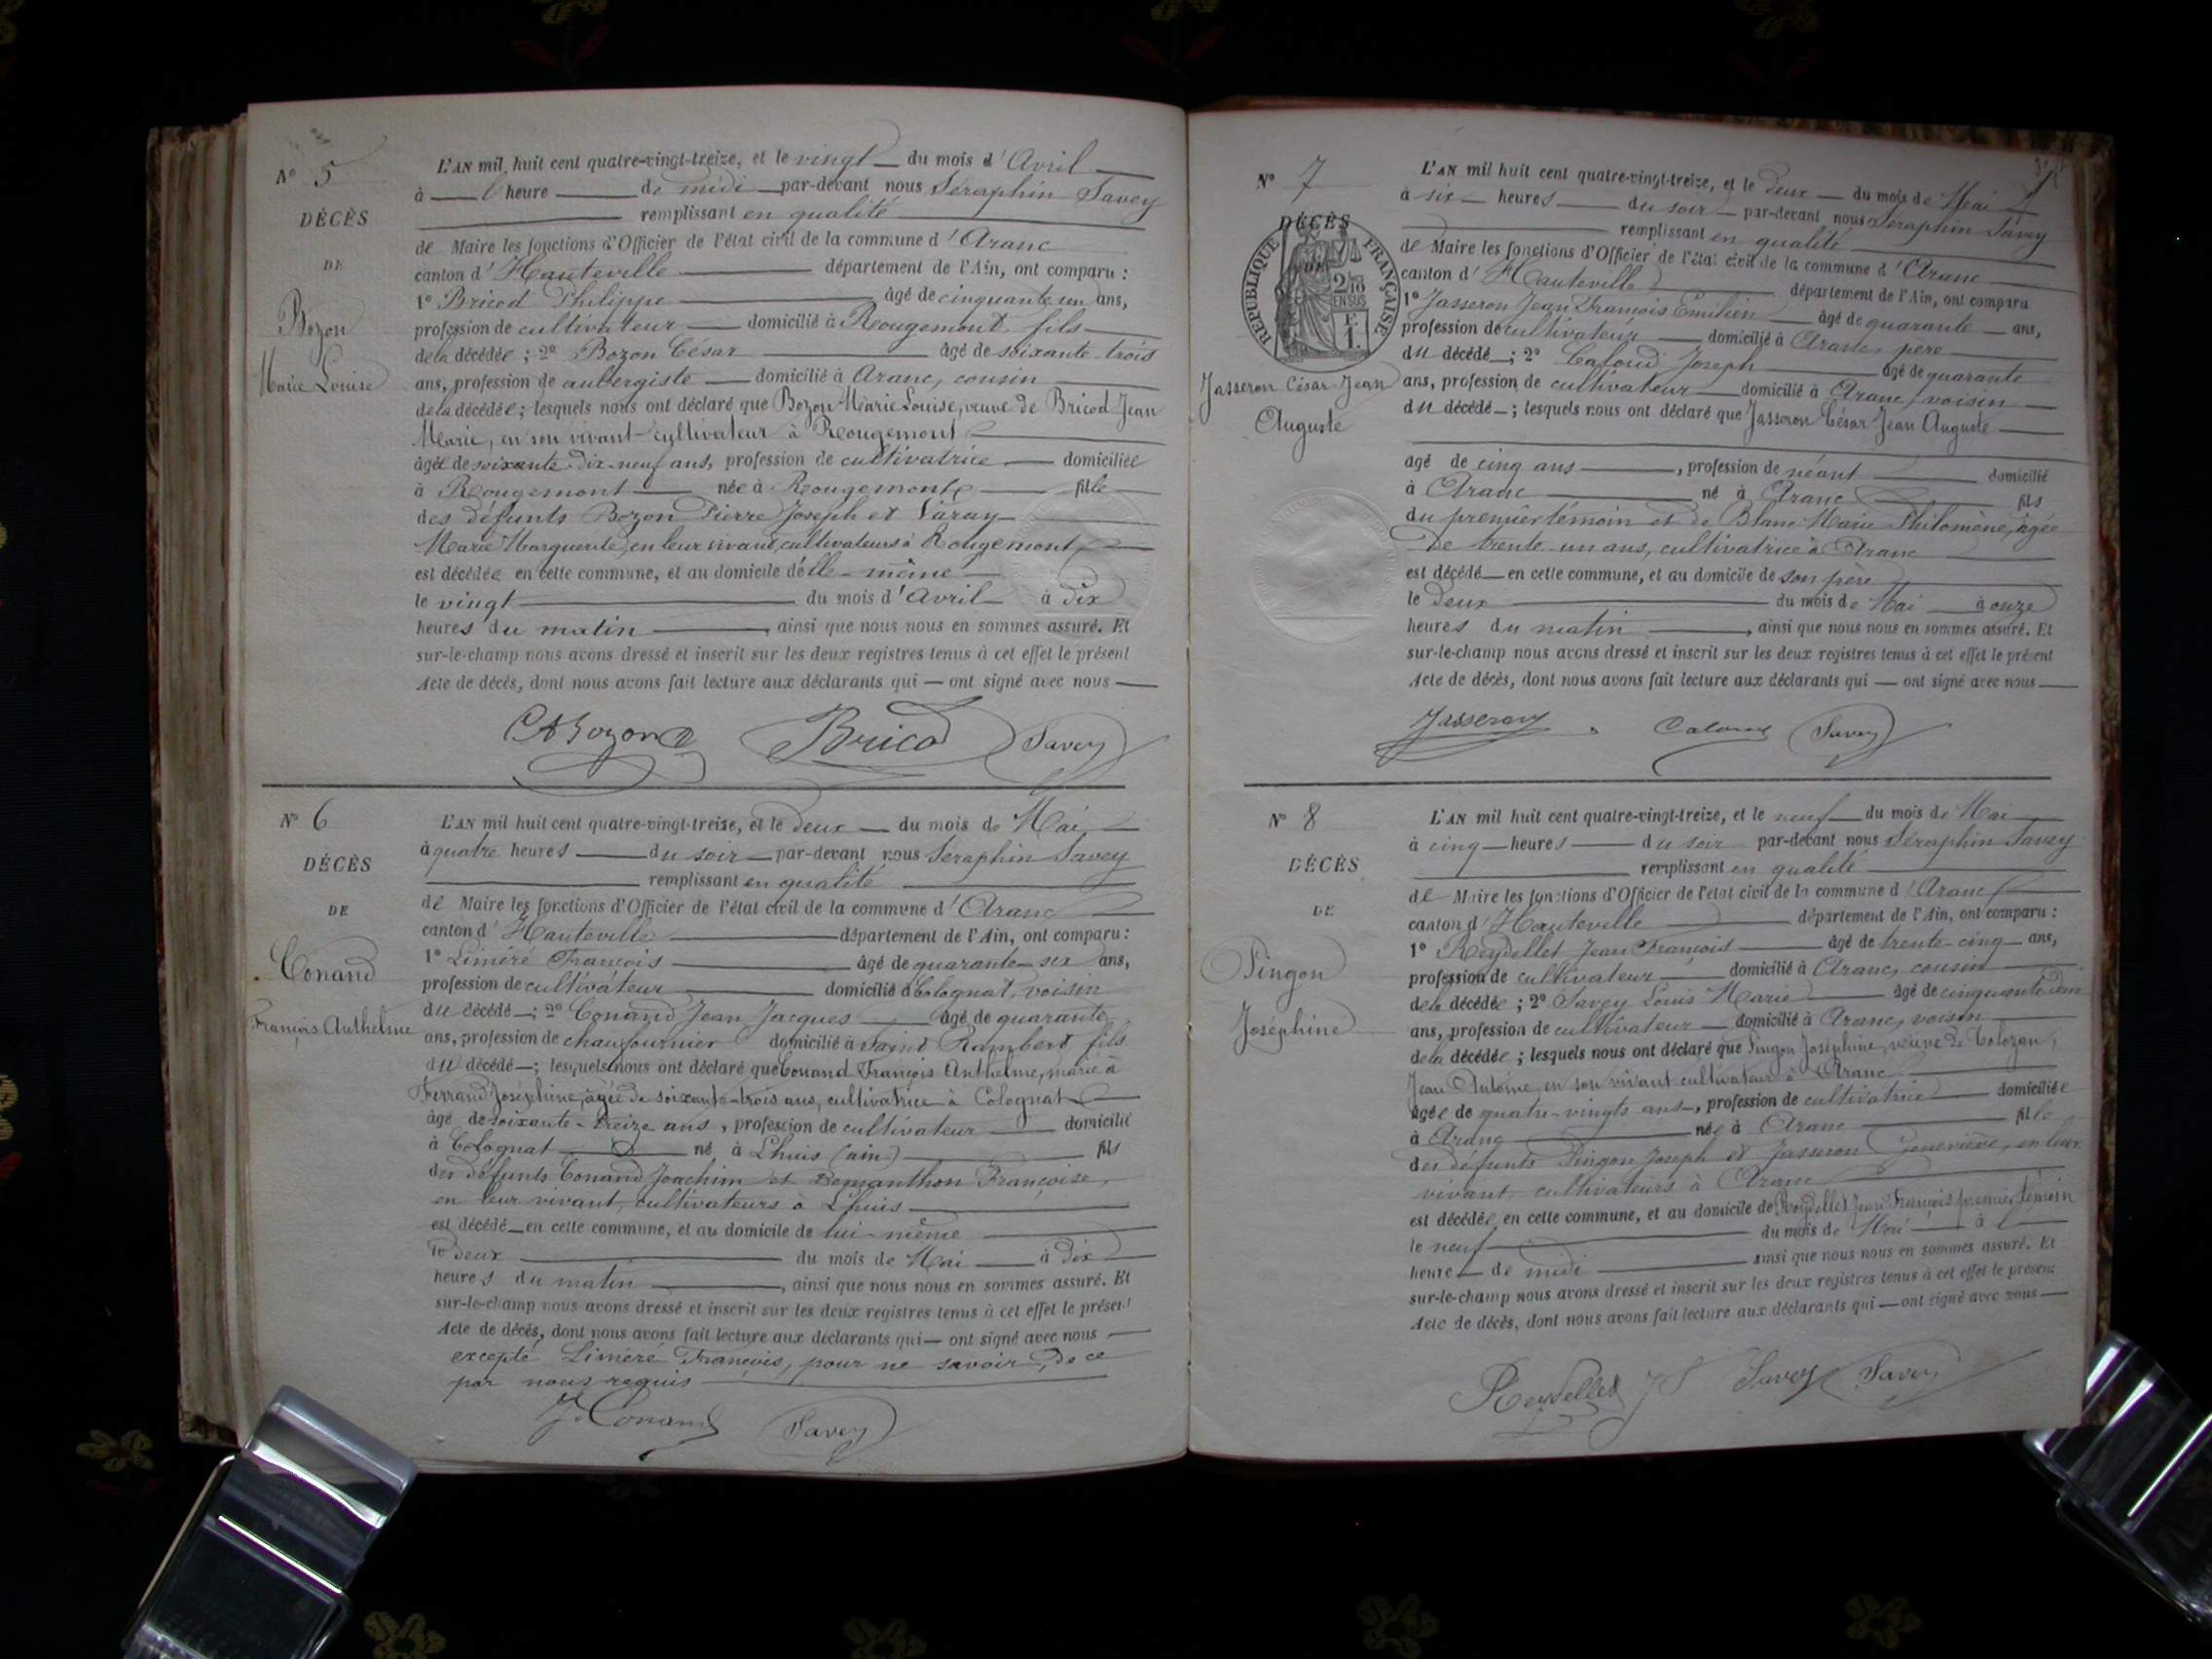 N° 5
DÉCÈS
DE
Bozon
Marie Louise
L'AN mil huit cent quatre-vingt-treize, et le vingt du mois d'Avril
à l heure de midi par-devant nous Séraphin Savey
remplissant en qualité
de Maire les fonctions d'Officier de l'état civil de la commune d'Aranc
canton d'Hauteville département de l'Ain, ont comparu :
1° Bricod Philippe âgé de cinquante un ans,
profession de cultivateur domicilié à Rougemont, fils
de la décédée ; 2° Bozon César âgé de soixante-trois
ans, profession de aubergiste domicilié à Aranc, cousin
de la décédée ; lesquels nous ont déclaré que Bozon Marie Louise, veuve de Bricod Jean
Marie, en son vivant cultivateur à Rougemont
âgée de soixante-dix-neuf ans, profession de cultivatrice domiciliée
à Rougemont née à Rougemont fille
des défunts Bozon Pierre Joseph et Varay
Marie Marguerite, en leur vivant, cultivateurs à Rougemont,
est décédée en cette commune, et au domicile d'elle-même
le vingt du mois d'Avril à dix
heures du matin, ainsi que nous nous en sommes assuré. Et
sur-le-champ nous avons dressé et inscrit sur les deux registres tenus à cet effet le présent
Acte de décès, dont nous avons fait lecture aux déclarants qui — ont signé avec nous
CA Bozon Bricod Savey
N° 6
DÉCÈS
DE
Conand
François Anthelme
L'AN mil huit cent quatre-vingt-treize, et le deux du mois de Mai
à quatre heures du soir par-devant nous Séraphin Savey
remplissant en qualité
de Maire les fonctions d'Officier de l'état civil de la commune d'Aranc
canton d'Hauteville département de l'Ain, ont comparu :
1° Liméré François âgé de quarante-six ans,
profession de cultivateur domicilié à Colognat, voisin
du décédé ; 2° Conand Jean Jacques âgé de quarante
ans, profession de chaufournier domicilié à Saint Rambert, fils
du décédé ; lesquels nous ont déclaré que Conand François Anthelme, marié à
Ferrand Joséphine, âgée de soixante-trois ans, cultivatrice à Colognat
âgé de soixante-treize ans, profession de cultivateur domicilié
à Colognat né à Lhuis (ain) fils
des défunts Conand Joachim et Demanthon Françoise,
en leur vivant, cultivateurs à Lhuis
est décédé en cette commune, et au domicile de lui-même
le deux du mois de Mai à dix
heures du matin, ainsi que nous nous en sommes assuré. Et
sur-le-champ nous avons dressé et inscrit sur les deux registres tenus à cet effet le présent
Acte de décès, dont nous avons fait lecture aux déclarants qui — ont signé avec nous
excepté Liméré François, pour ne savoir, de ce
par nous requis
J. Conand Savey
N° 7
DÉCÈS
DE
RÉPUBLIQUE FRANÇAISE
2/10
EN SUS
F.
1.
Jasseron César Jean
Auguste
L'AN mil huit cent quatre-vingt-treize, et le deux du mois de Mai
à six heures du soir par-devant nous Séraphin Savey
remplissant en qualité
de Maire les fonctions d'Officier de l'état civil de la commune d'Aranc
canton d'Hauteville département de l'Ain, ont comparu
1° Jasseron Jean François Emilien âgé de quarante ans,
profession de cultivateur domicilié à Aranc, père
du décédé ; 2° Caloud Joseph âgé de quarante
ans, profession de cultivateur domicilié à Aranc, voisin
du décédé ; lesquels nous ont déclaré que Jasseron César Jean Auguste
âgé de cinq ans, profession de néant domicilié
à Aranc né à Aranc fils
du premier témoin et de Blanc Marie Philomène, âgée
de trente-un ans, cultivatrice à Aranc
est décédé en cette commune, et au domicile de son père
le deux du mois de Mai à onze
heures du matin, ainsi que nous nous en sommes assuré. Et
sur-le-champ nous avons dressé et inscrit sur les deux registres tenus à cet effet le présent
Acte de décès, dont nous avons fait lecture aux déclarants qui — ont signé avec nous
Jasseron Caloud Savey
N° 8
DÉCÈS
DE
Pingon
Joséphine
L'AN mil huit cent quatre-vingt-treize, et le neuf du mois de Mai
à cinq heures du soir par-devant nous Séraphin Savey
remplissant en qualité
de Maire les fonctions d'Officier de l'état civil de la commune d'Aranc
canton d'Hauteville département de l'Ain, ont comparu :
1° Reydellet Jean François âgé de trente-cinq ans,
profession de cultivateur domicilié à Aranc, cousin
de la décédée ; 2° Savey Louis Marie âgé de cinquante
ans, profession de cultivateur domicilié à Aranc, voisin
de la décédée ; lesquels nous ont déclaré que Pingon Joséphine, veuve de Colozan,
Jean Antoine, en son vivant cultivateur à Aranc
âgée de quatre-vingts ans, profession de cultivatrice domiciliée
à Aranc née à Aranc fille
des défunts Pingon Joseph et Jasseron Geneviève, en leur
vivant, cultivateurs à Aranc
est décédée en cette commune, et au domicile de Reydellet Jean François premier témoin
le neuf du mois de Mai à l
heure de midi ainsi que nous nous en sommes assuré. Et
sur-le-champ nous avons dressé et inscrit sur les deux registres tenus à cet effet le présent
Acte de décès, dont nous avons fait lecture aux déclarants qui — ont signé avec nous
Reydellet J S Savey Savey